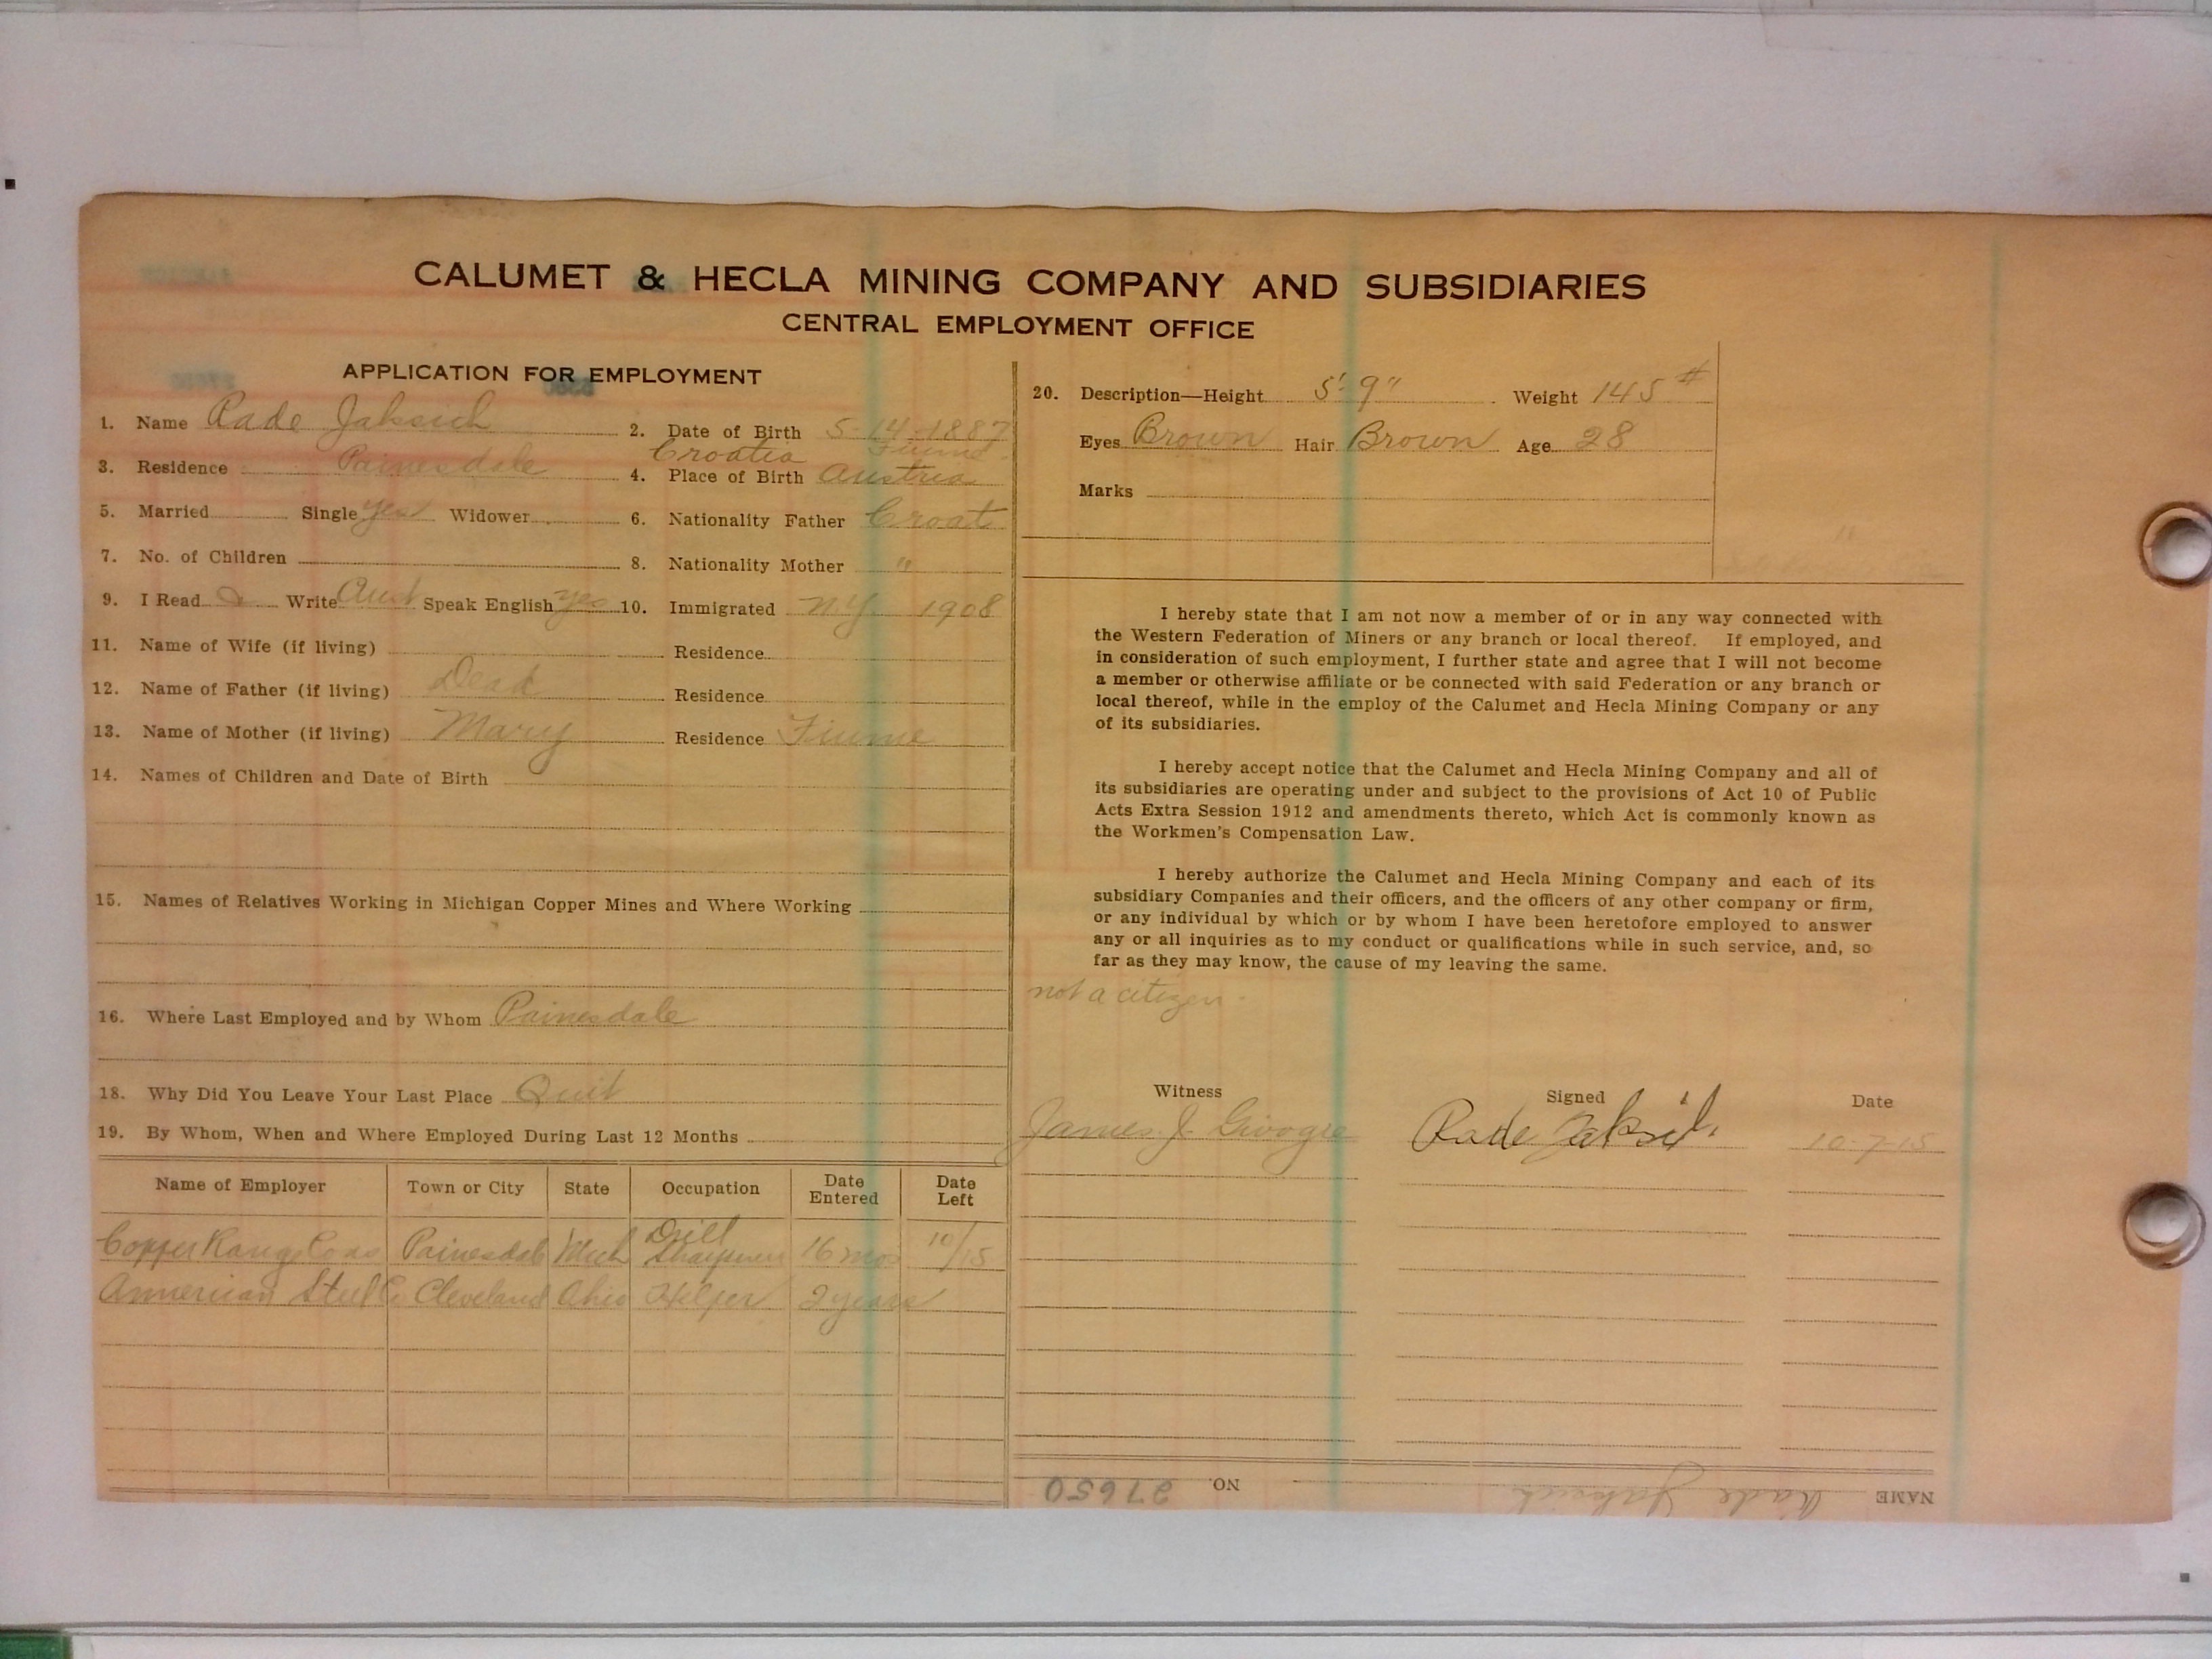 CALUMET & HECLA MINING COMPANY AND SUBSIDIARIES
CENTRAL EMPLOYMENT OFFICE
APPLICATION FOR EMPLOYMENT
1. Name Rade Jaksich 2. Date of Birth 5-14-1887
Croatia Fiume
3. Residence Painesdale 4. Place of Birth Austria
5. Married Single yes Widower 6. Nationality Father Croat
7. No. of Children 8. Nationality Mother "
9. I Read Write Aust Speak English yes 10. Immigrated N.Y. 1908
11. Name of Wife (if living) Residence
12. Name of Father (if living) Dead Residence
13. Name of Mother (if living) Mary Residence Fiume
14. Names of Children and Date of Birth
15. Names of Relatives Working in Michigan Copper Mines and Where Working
16. Where Last Employed and by Whom Painesdale
18. Why Did You Leave Your Last Place Quit
19. By Whom, When and Where Employed During Last 12 Months
Name of Employer Town or City State Occupation Date Entered Date Left
Copper Range Cons Painesdale Mich Drill 16 mos 10/15
American Steel Co Cleveland Ohio Helper 2 years
20. Description—Height 5' 9" Weight 145 #
Eyes Brown Hair Brown Age 28
Marks
I hereby state that I am not now a member of or in any way connected with
the Western Federation of Miners or any branch or local thereof. If employed, and
in consideration of such employment, I further state and agree that I will not become
a member or otherwise affiliate or be connected with said Federation or any branch or
local thereof, while in the employ of the Calumet and Hecla Mining Company or any
of its subsidiaries.
I hereby accept notice that the Calumet and Hecla Mining Company and all of
its subsidiaries are operating under and subject to the provisions of Act 10 of Public
Acts Extra Session 1912 and amendments thereto, which Act is commonly known as
the Workmen's Compensation Law.
I hereby authorize the Calumet and Hecla Mining Company and each of its
subsidiary Companies and their officers, and the officers of any other company or firm,
or any individual by which or by whom I have been heretofore employed to answer
any or all inquiries as to my conduct or qualifications while in such service, and, so
far as they may know, the cause of my leaving the same.
not a citizen -
Witness Signed Date
James J. Rade Jaksich 10-7-15
NAME Rade Jaksich NO. 27650